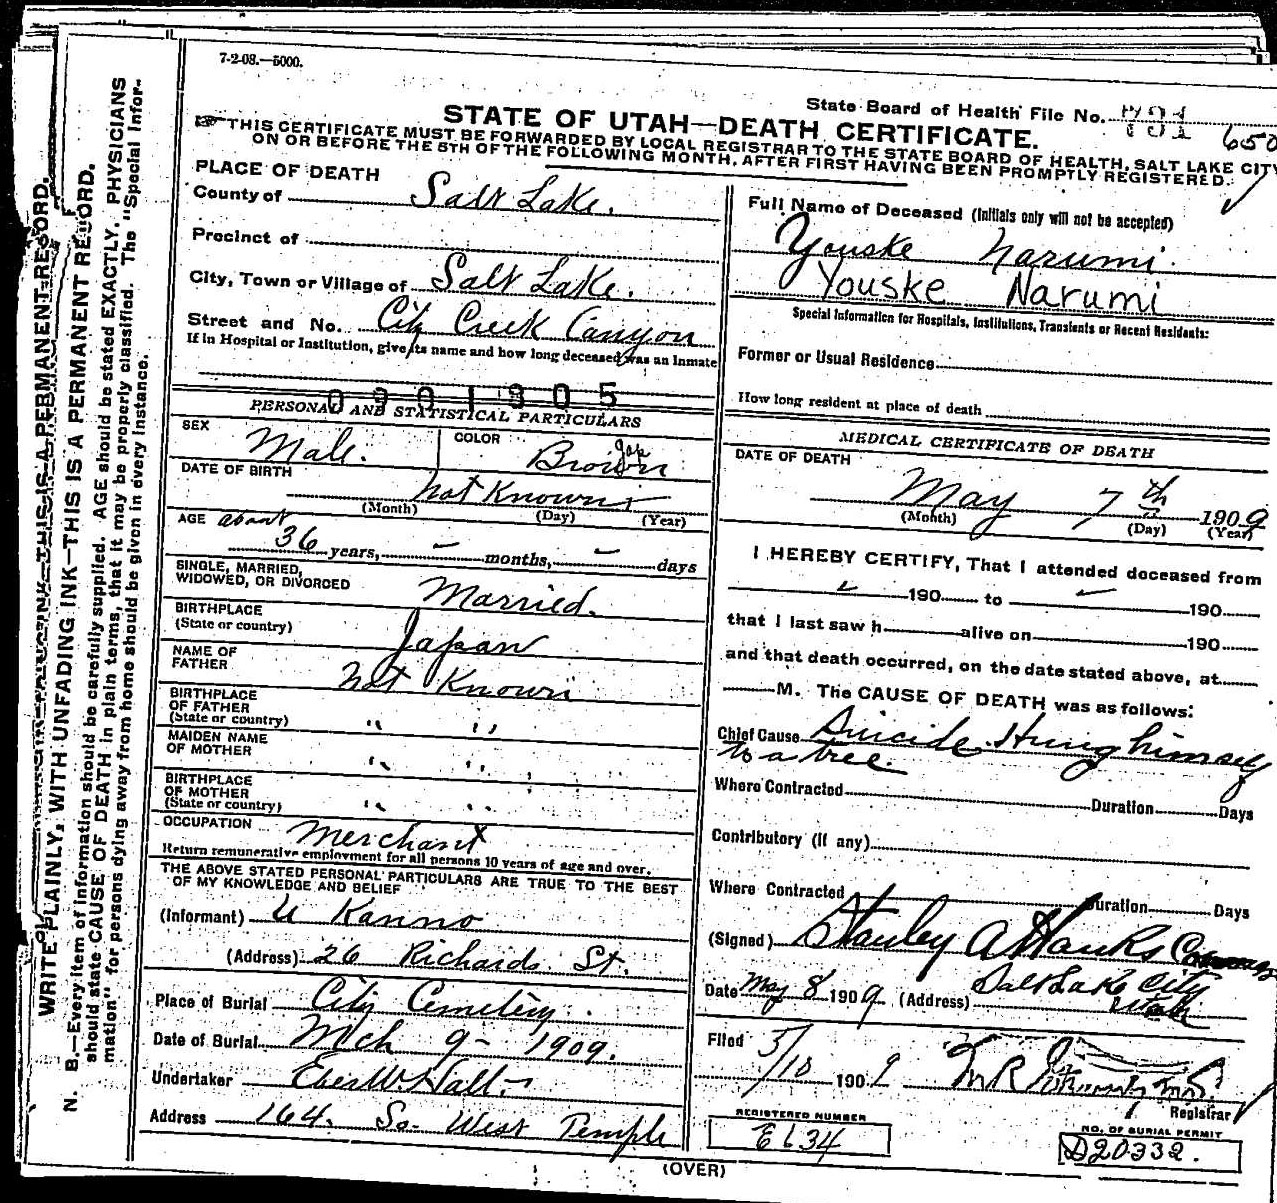 7-2-08.—5000.
State Board of Health File No. 791 650
STATE OF UTAH—DEATH CERTIFICATE.
THIS CERTIFICATE MUST BE FORWARDED BY LOCAL REGISTRAR TO THE STATE BOARD OF HEALTH, SALT LAKE CITY
ON OR BEFORE THE 5TH OF THE FOLLOWING MONTH, AFTER FIRST HAVING BEEN PROMPTLY REGISTERED.
WRITE PLAINLY, WITH UNFADING INK—THIS IS A PERMANENT RECORD.
N. B.—Every item of information should be carefully supplied. AGE should be stated EXACTLY. PHYSICIANS
should state CAUSE OF DEATH in plain terms, that it may be properly classified. The "Special Infor-
mation" for persons dying away from home should be given in every instance.
PLACE OF DEATH
County of Salt Lake.
Precinct of
City, Town or Village of Salt Lake.
Street and No. City Creek Canyon
If in Hospital or Institution, give its name and how long deceased was an inmate
0901305
PERSONAL AND STATISTICAL PARTICULARS
SEX Male. COLOR Brown Jap
DATE OF BIRTH Not Known
(Month) (Day) (Year)
AGE about
36 years, – months, – days
SINGLE, MARRIED,
WIDOWED, OR DIVORCED Married.
BIRTHPLACE
(State or country) Japan
NAME OF
FATHER Not Known
BIRTHPLACE
OF FATHER
(State or country) " "
MAIDEN NAME
OF MOTHER " "
BIRTHPLACE
OF MOTHER
(State or country) " "
OCCUPATION Merchant
Return remunerative employment for all persons 10 years of age and over.
THE ABOVE STATED PERSONAL PARTICULARS ARE TRUE TO THE BEST
OF MY KNOWLEDGE AND BELIEF
(Informant) U Kanno
(Address) 26 Richards St.
Place of Burial City Cemetery.
Date of Burial Mch 9 - 1909.
Undertaker Eber W Hall
Address 164. So. West Temple
Full Name of Deceased (Initials only will not be accepted)
Youske Narumi.
Youske Narumi
Special Information for Hospitals, Institutions, Transients or Recent Residents:
Former or Usual Residence
How long resident at place of death
MEDICAL CERTIFICATE OF DEATH
DATE OF DEATH
May 7th 1909
(Month) (Day) (Year)
I HEREBY CERTIFY, That I attended deceased from
190 to 190
that I last saw h alive on 190
and that death occurred, on the date stated above, at
M. The CAUSE OF DEATH was as follows:
Chief Cause Suicide Hung himself
to a tree.
Where Contracted Duration Days
Contributory (if any)
Where Contracted Duration Days
(Signed) Stanley A Hanks
Date May 8 1909 (Address) Salt Lake City
Utah
Filed 5/10 1909
Registrar
REGISTERED NUMBER
E 634
NO. OF BURIAL PERMIT
D20332.
(OVER)